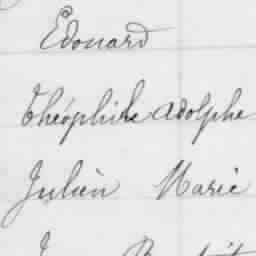 Edouard
Théophile Adolphe
Julien Marie